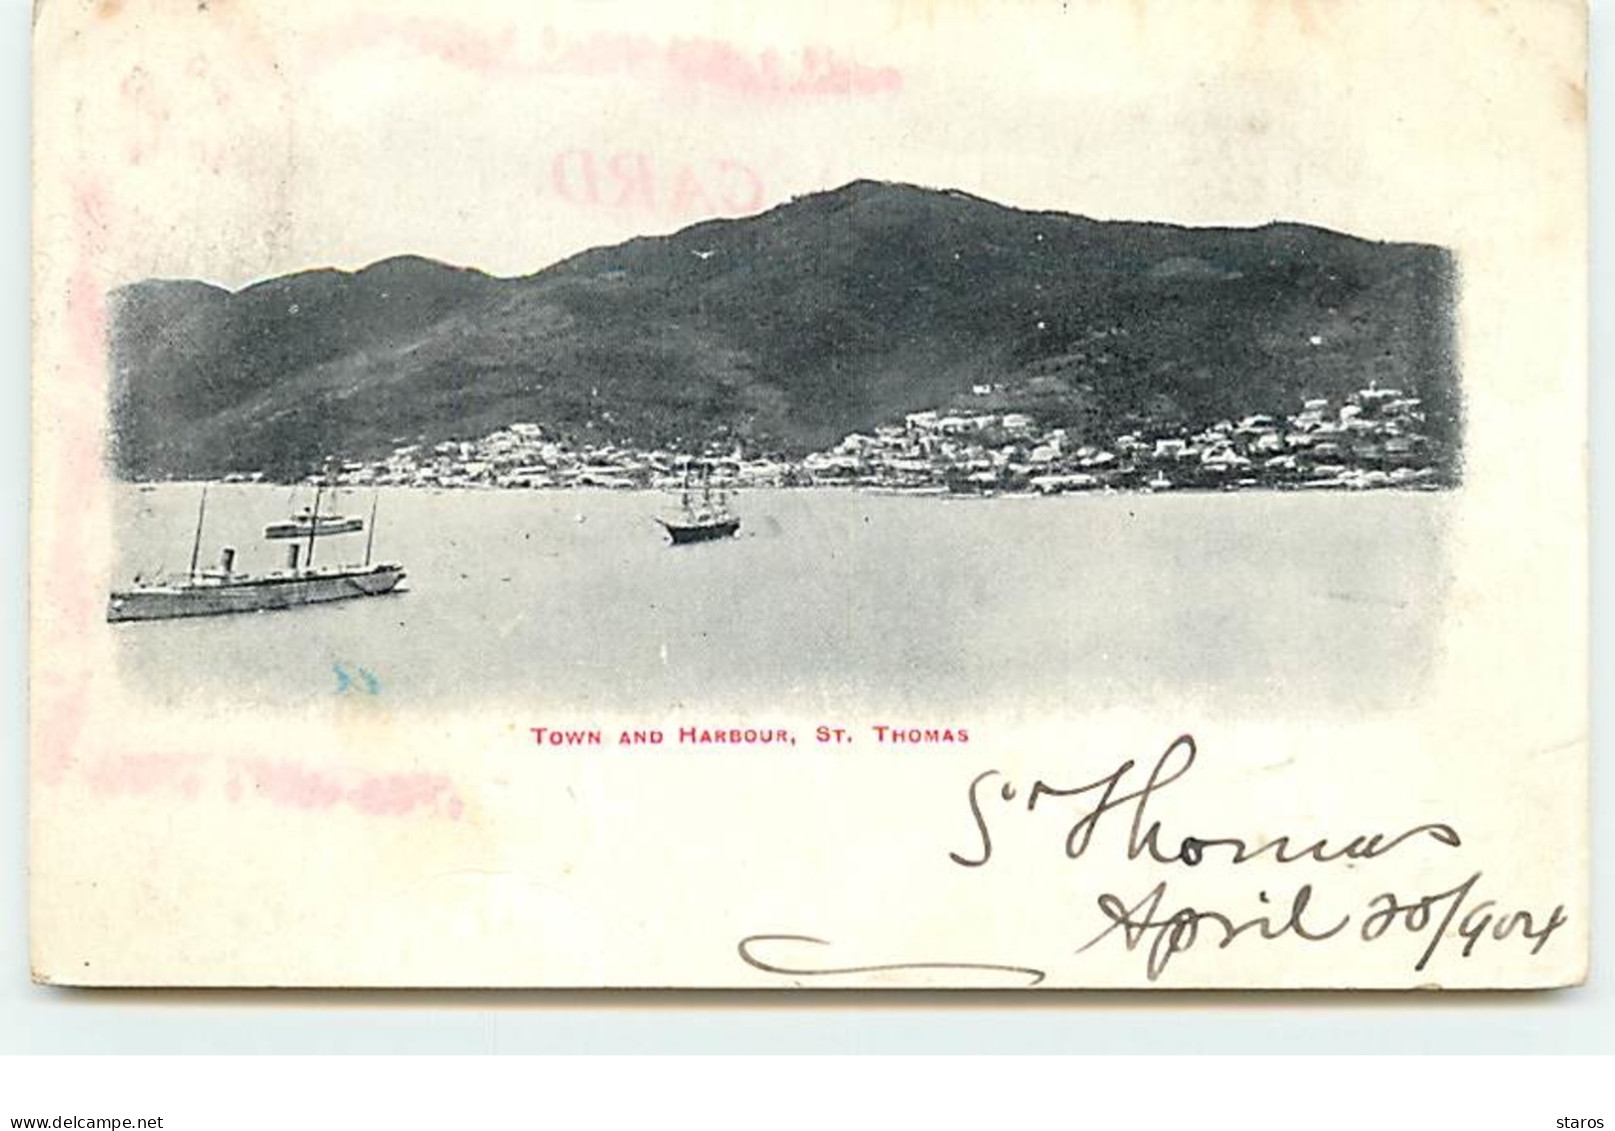 CARD
TOWN AND HARBOUR, ST. THOMAS
St Thomas
April 20/904
www.delcampe.net
staros